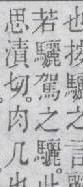 也按驪之言
若驪駕之驪
思漬切肉几也